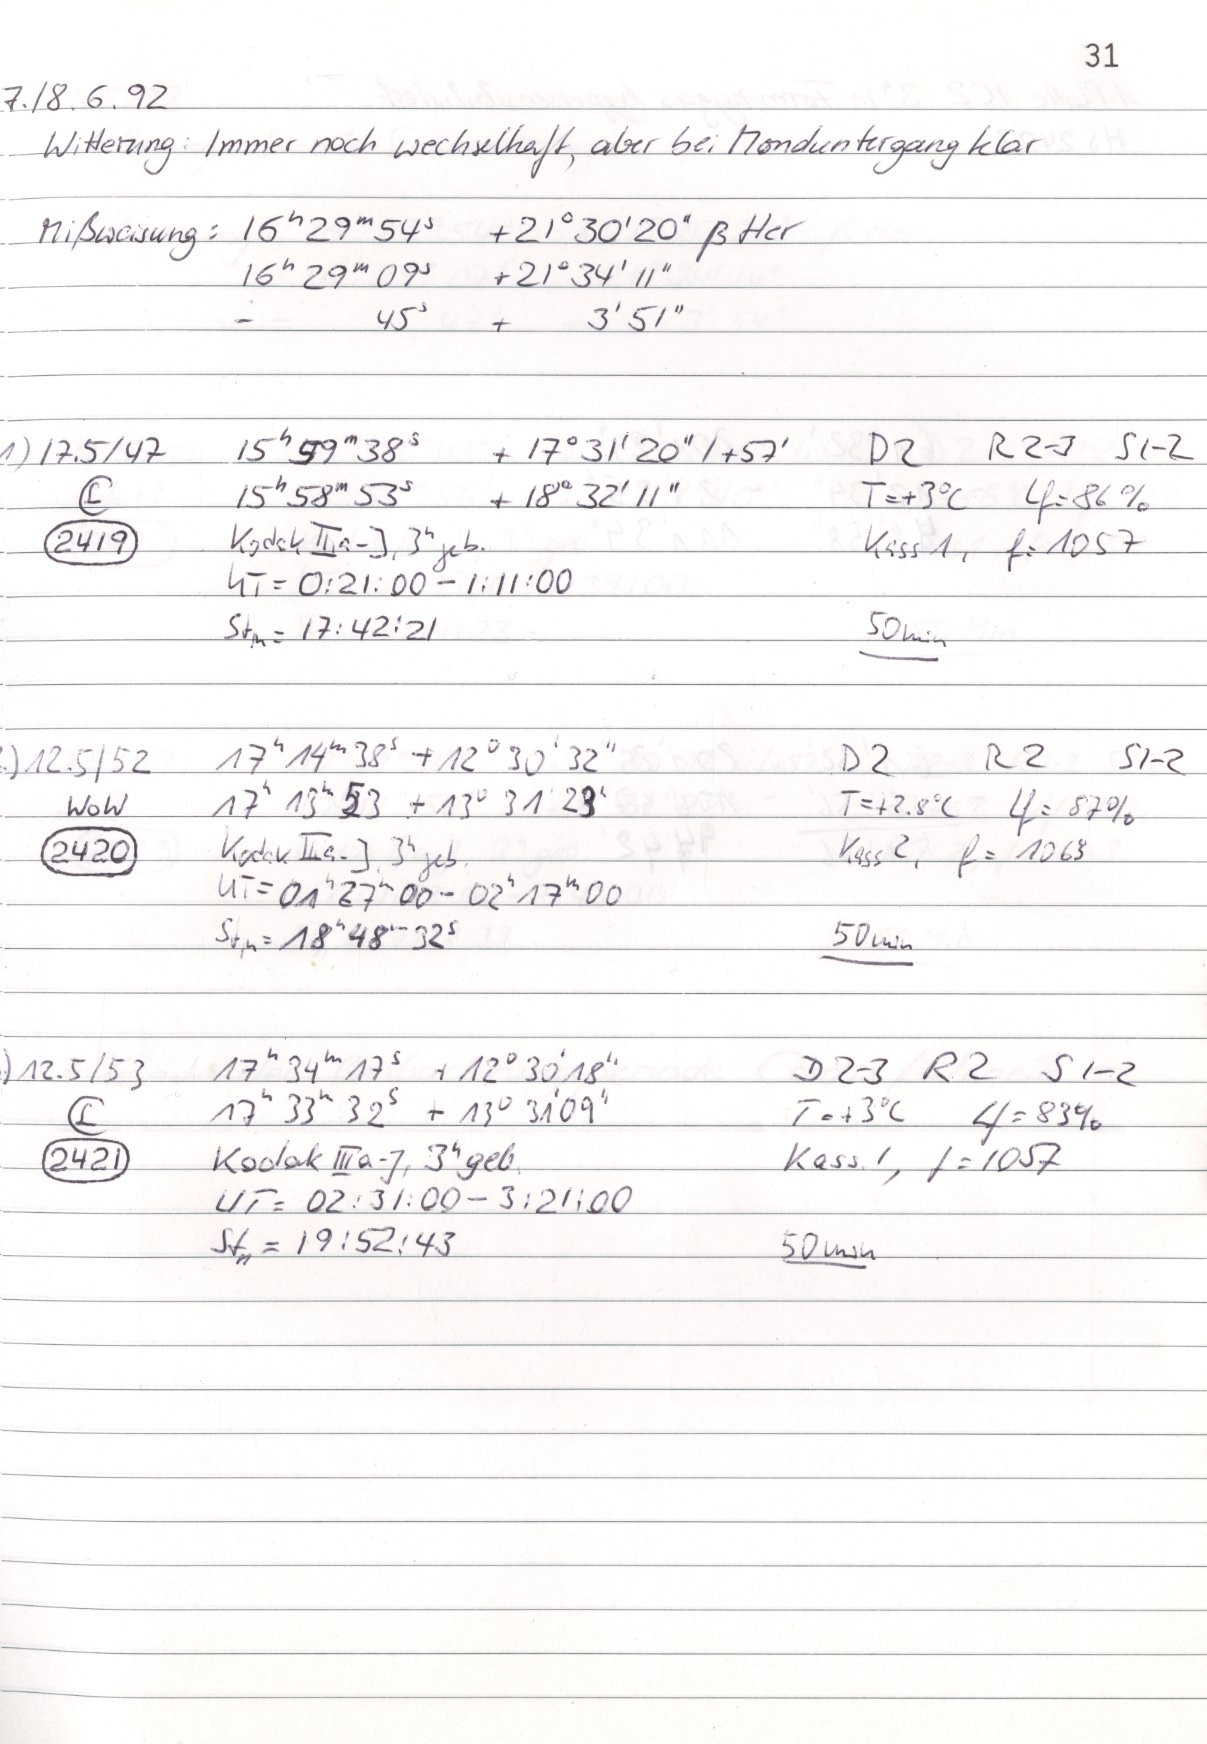 31
7./8.6.92
Witterung: Immer noch wechselhaft, aber bei Monduntergang klar
Mißweisung: 16ʰ29ᵐ54ˢ +21°30'20" β Her
16ʰ29ᵐ09ˢ +21°34'11"
- 45ˢ + 3'51"
1) 17.5/47 15ʰ59ᵐ38ˢ +17°31'20" /+57' D2 R2-3 S1-2
15ʰ58ᵐ53ˢ +18°32'11" T=+3°C φ=86%
2419 Kodak IIIa-J, 3ʰ geb. Kass 1, f=1057
UT=0:21:00-1:11:00
Stₘ=17:42:21 50min
.) 12.5/52 17ʰ14ᵐ38ˢ +12°30'32" D2 R2 S1-2
WoW 17ʰ13ᵐ53 +13°31'23" T=+2.8°C φ=87%
2420 Kodak IIIa-J, 3ʰ geb. Kass 2, f=1063
UT=01ʰ27ᵐ00-02ʰ17ᵐ00
Stₘ=18ʰ48ᵐ32ˢ 50min
) 12.5/53 17ʰ34ᵐ17ˢ +12°30'18" D2-3 R2 S1-2
17ʰ33ᵐ32ˢ +13°31'09" T=+3°C φ=83%
2421 Kodak IIIa-J, 3ʰ geb. Kass. 1, f=1057
UT=02:31:00-3:21:00
Stₘ=19:52:43 50min